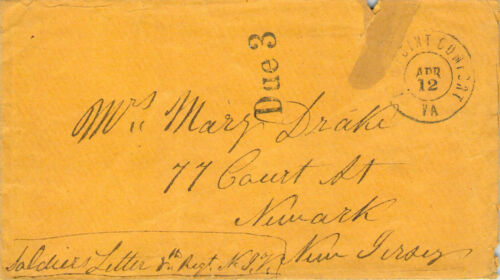 Due 3
POINT COMFORT
APR
12
VA
Mrs Mary Drake
77 Court St
Newark
New Jersey
Soldiers Letter 8th Regt. N.J.V.